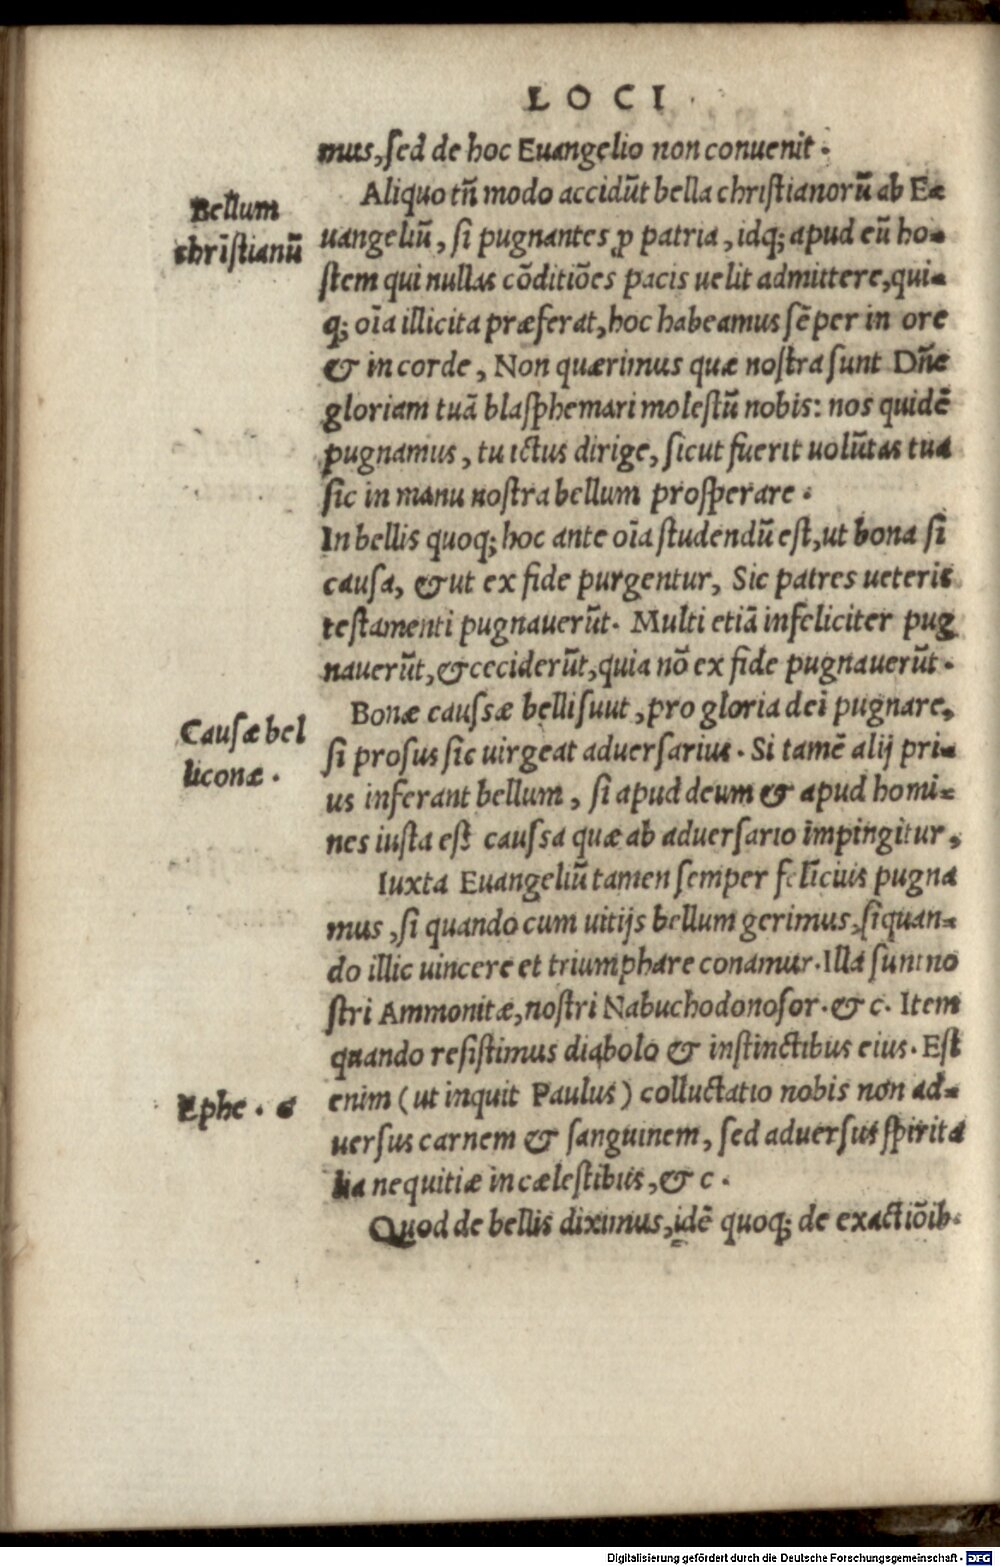 LOCI
mus, sed de hoc Euangelio non conuenit.
Aliquo tñ modo accidũt bella christianorũ ab E-
Bellum
christianũ
uangeliũ, si pugnantes ꝓ patria, idq; apud eũ ho-
stem qui nullas cõditiões pacis uelit admittere, qui-
q; oĩa illicita præferat, hoc habeamus sẽper in ore
& in corde, Non quærimus quæ nostra sunt Dñe
gloriam tuã blasphemari molestũ nobis: nos quidẽ
pugnamus, tu ictus dirige, sicut fuerit uolũtas tua
sic in manu nostra bellum prosperare.
In bellis quoq; hoc ante oĩa studendũ est, ut bona si
causa, & ut ex fide purgentur, Sic patres ueteris
testamenti pugnauerũt. Multi etiã infeliciter pug
nauerũt, & ceciderũt, quia nõ ex fide pugnauerũt.
Causæ bel
liconæ.
Bonæ caussæ belli suut, pro gloria dei pugnare,
si prosus sic uirgeat aduersarius. Si tamẽ alij pri-
us inferant bellum, si apud deum & apud homi-
nes iusta est caussa quæ ab aduersario impingitur,
Iuxta Euangeliũ tamen semper felicius pugna
mus, si quando cum uitijs bellum gerimus, si quan-
do illic uincere et triumphare conamur. Illa sunt no
stri Ammonitæ, nostri Nabuchodonosor. & c. Item
quando resistimus diabolo & instinctibus eius. Est
Ephe. 6
enim (ut inquit Paulus) colluctatio nobis non ad-
uersus carnem & sanguinem, sed aduersus spirita
lia nequitiæ in cælestibus, & c.
Quod de bellis diximus, idẽ quoq; de exactiõib.
Digitalisierung gefördert durch die Deutsche Forschungsgemeinschaft - DFG